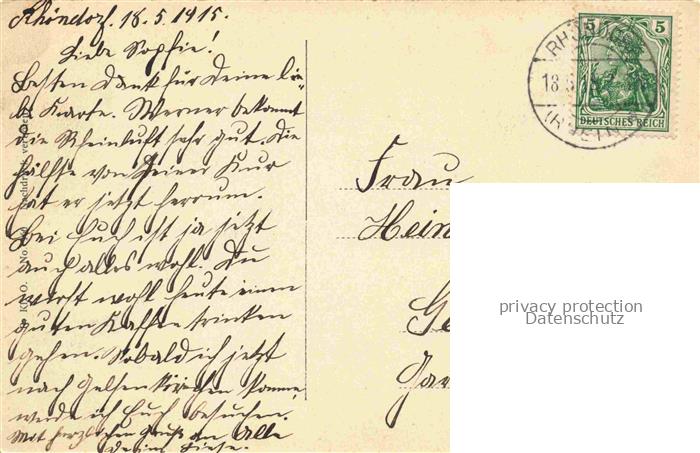 Rhöndorf. 18.5.1915.
Liebe Sophie!
Besten Dank für Deine lie-
be Karte. Werner bekommt
die Rheinluft sehr gut. Die
Hälfte von seiner Kur
hat er jetzt herrum.
Bei Euch ist ja jetzt
auch alles wohl. Du
wirst wohl heute einen
guten Kaffee trinken
gehen. Sobald ich jetzt
nach Gelsenkirchen komme,
werde ich Euch besuchen.
Mit herzlichen Gruß an Alle
Deine Liese.
5 5
DEUTSCHES REICH
(RHEIN)
Frau
Hein
Ge
privacy protection
Datenschutz